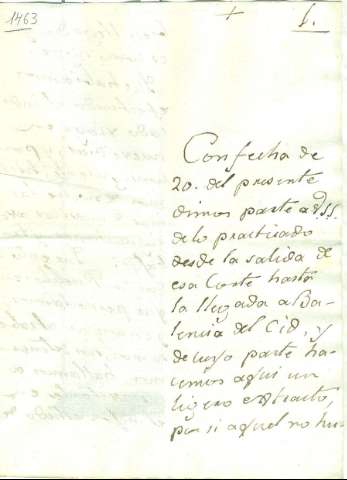 1463
+
1.
Con fecha de
20. del presente
dimos parte a V.SS.
de lo practicado
desde la salida de
esa Corte hasta
la llegada a Ba-
lencia del Cid, y
de cuyo parte ha-
cemos aqui un
ligero extracto,
por si aquel no hu-